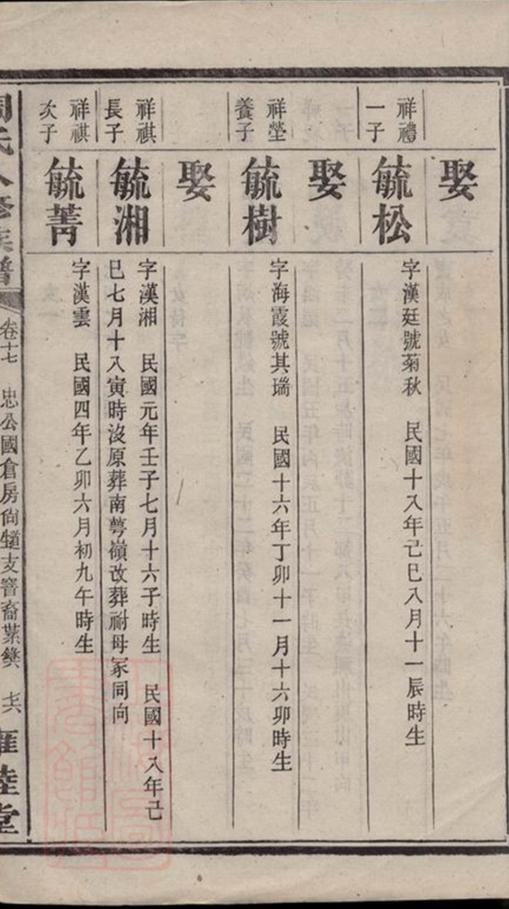 娶
祥禮
一子
毓松
字漢廷號菊秋　民國十八年己巳八月十一辰時生
娶
祥塋
養子
毓樹
字海霞號其瑞　民國十六年丁卯十一月十六卯時生
娶
祥祺
長子
毓湘
字漢湘　民國元年壬子七月十六子時生　民國十八年己
巳七月十八寅時沒原葬南萼嶺改葬祔母冢同向
祥祺
次子
毓菁
字漢雲　民國四年乙卯六月初九午時生
周氏八修族譜
卷十七　忠公國倉房尙𨫼支睿裔葉
雍睦堂